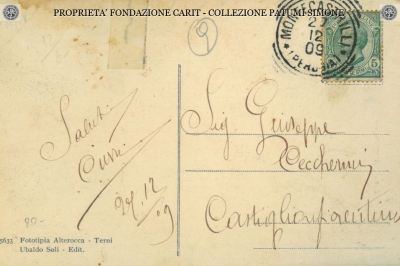 PROPRIETA' FONDAZIONE CARIT - COLLEZIONE PATUMI SIMONE
9
MONTECASTRILLI
27
12
09
(PERUGIA)
5
Saluti
27/12
09
Sig Giuseppe
Ceccherini
Castiglion fiorentino
20-
5633 Fototipia Alterocca - Terni
Ubaldo Soli - Edit.